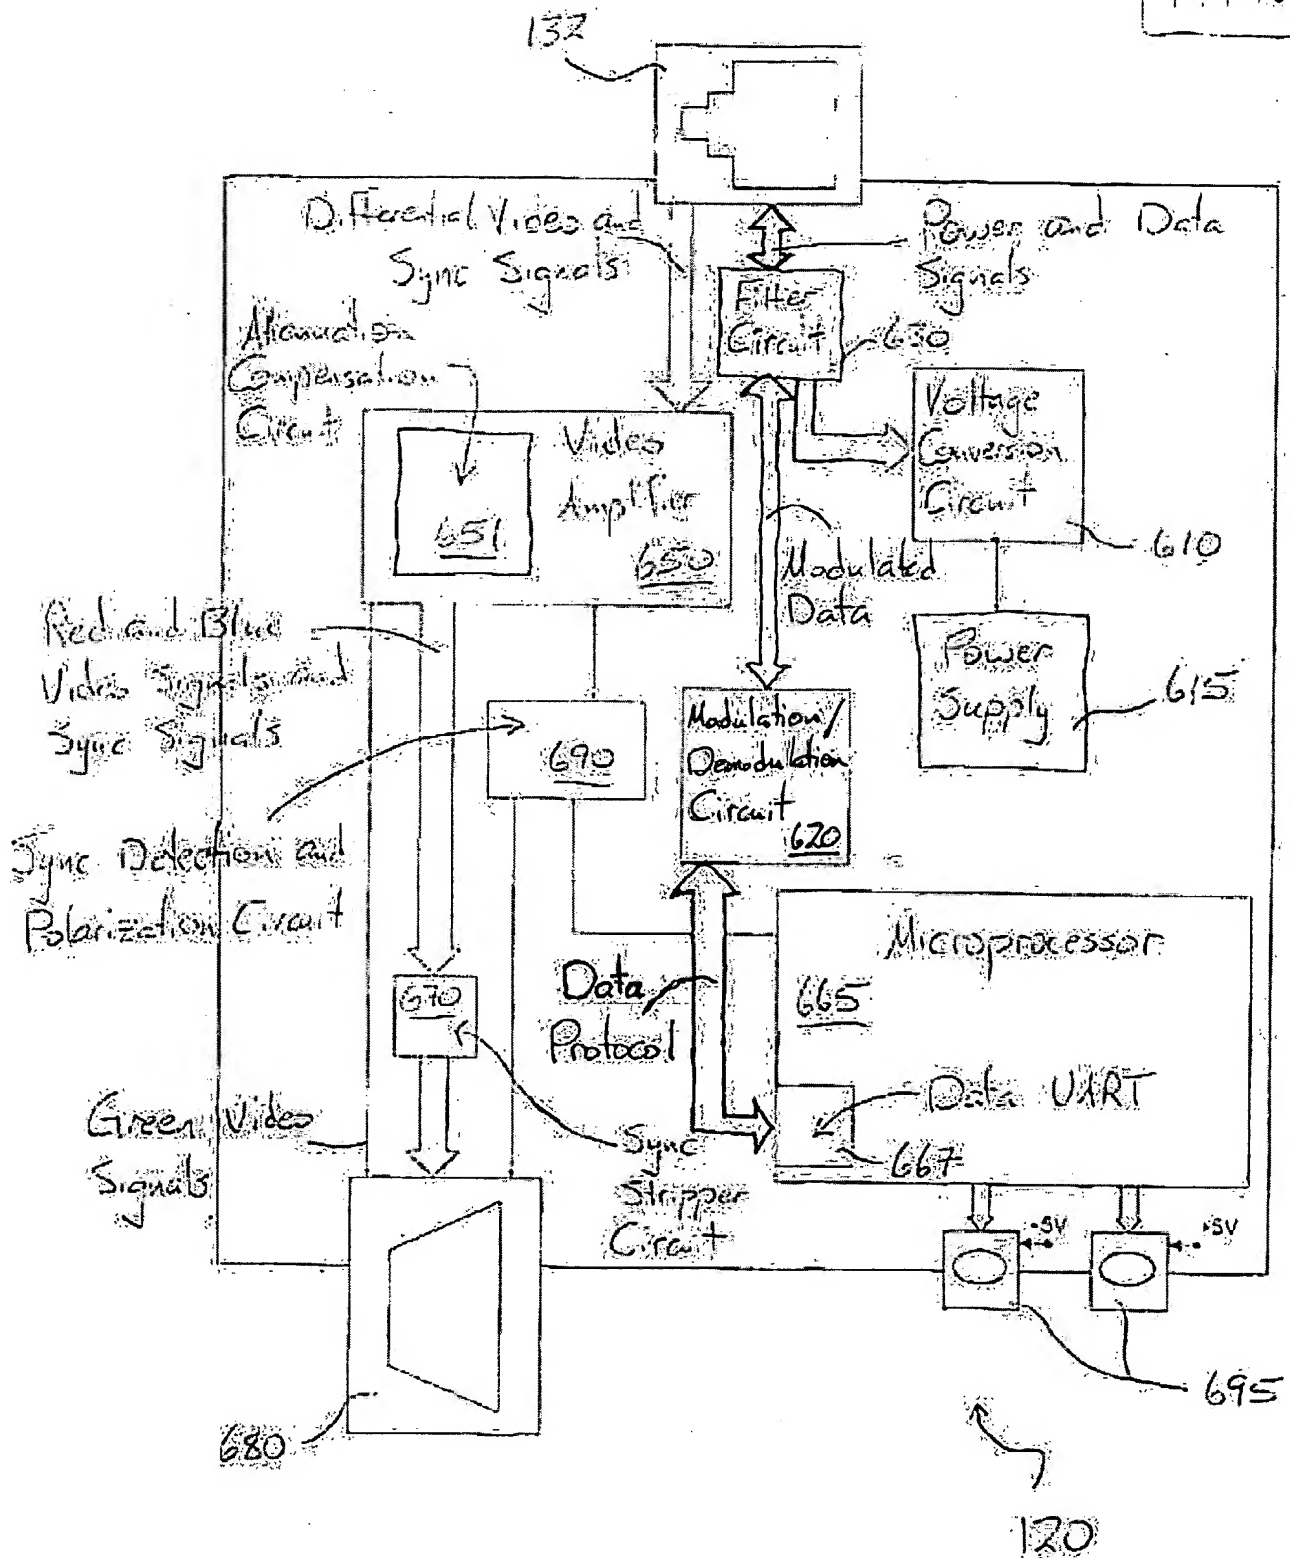 132
Differential Video and
Sync Signals
Power and Data
Signals
Filter
Circuit
630
Attenuation
Compensation
Circuit
Video
Amplifier
651
650
Voltage
Conversion
Circuit
610
Modulated
Data
Red and Blue
Video Signals and
Sync Signals
Power
Supply
615
Modulation/
Demodulation
Circuit
620
690
Sync Detection and
Polarization Circuit
Microprocessor
665
Data
Protocol
670
Data UART
667
Green Video
Signals
Sync
Stripper
Circuit
5V
5V
695
680
120